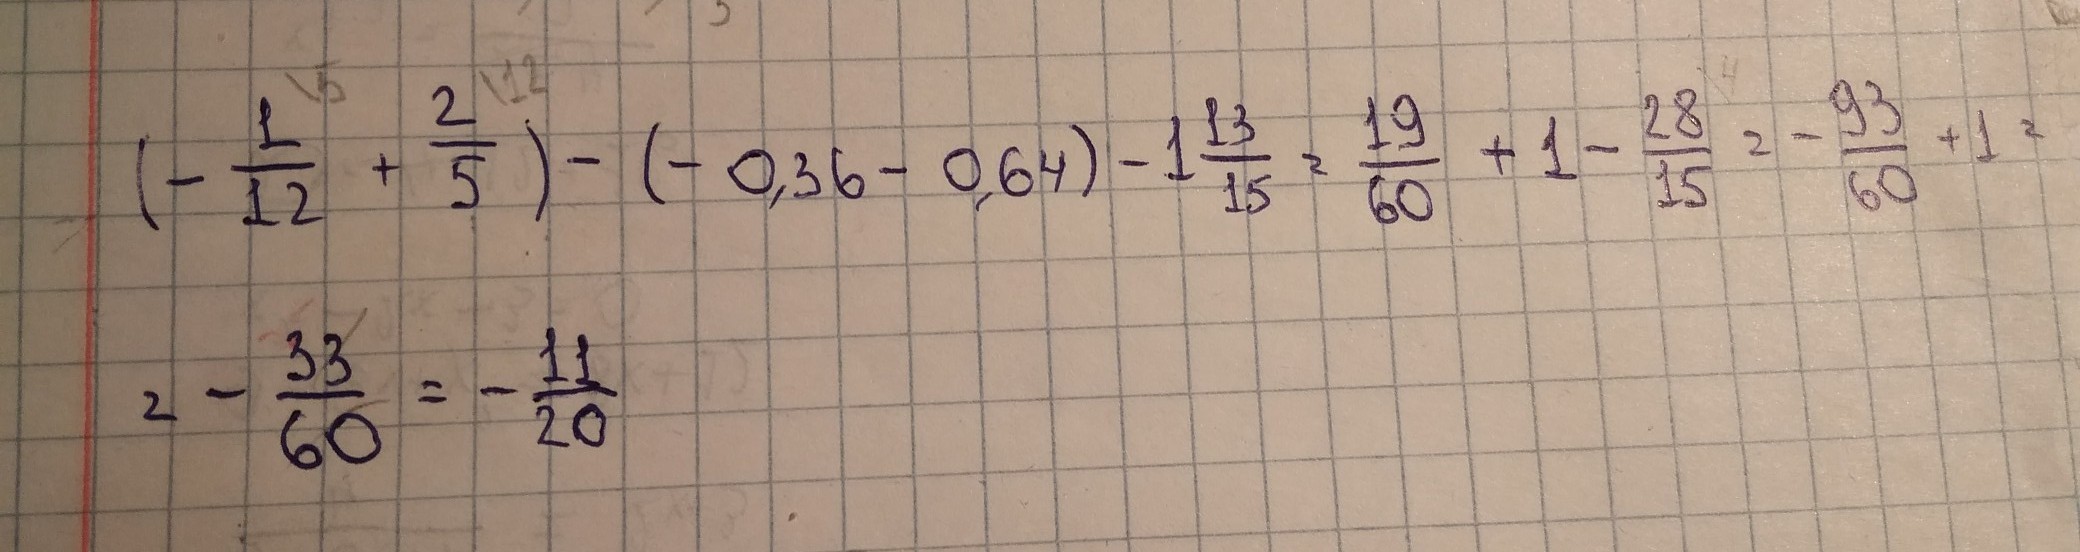 (- 1/12 \5 + 2/5 \12) - (- 0,36 - 0,64) - 1 13/15 = 19/60 + 1 - 28/15 \4 = - 93/60 + 1 =
= - 33/60 = - 11/20